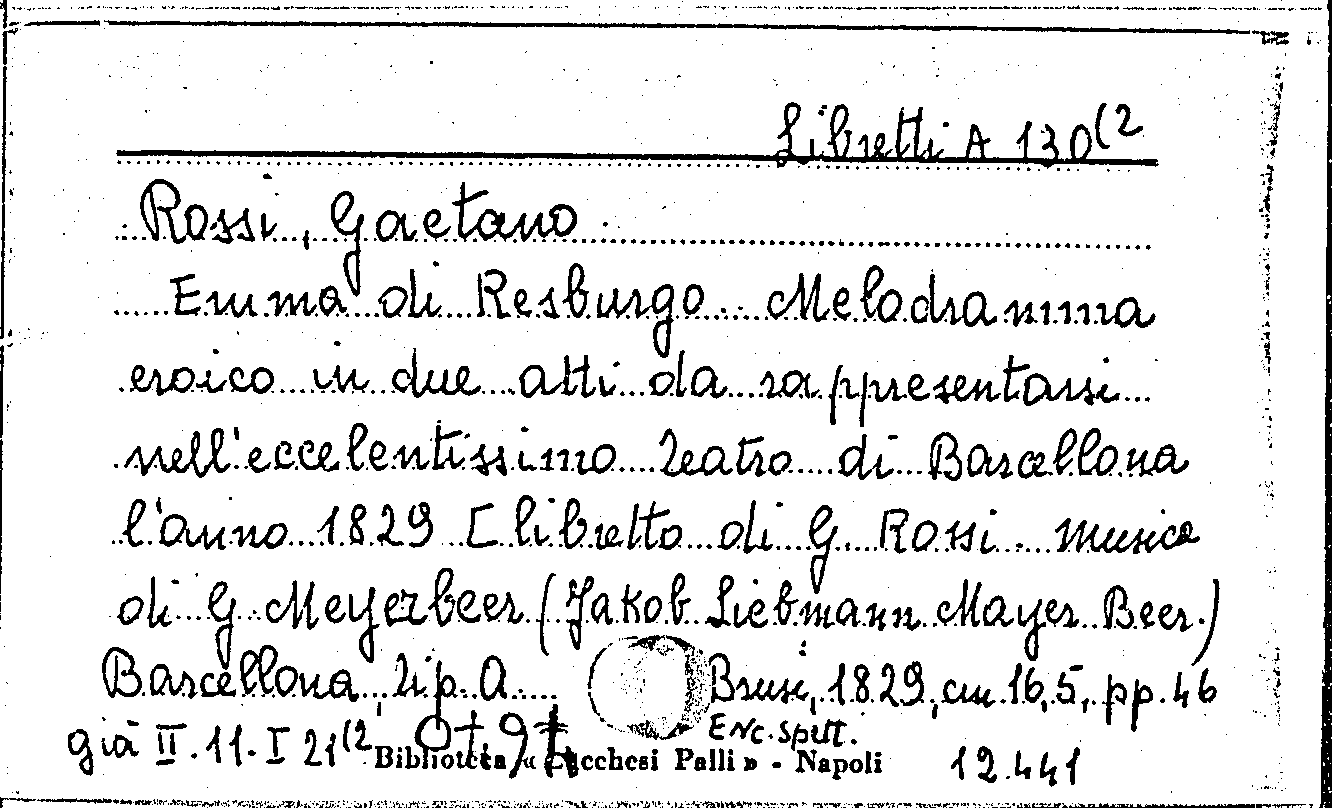 Libretti A 130(2
Rossi, Gaetano
Emma di Resburgo. Melodramma
eroico in due atti da rappresentarsi
nell'eccelentissimo Teatro di Barcellona
l'anno 1829 [libretto di G. Rossi. musica
di G. Meyerbeer (Jakob Liebmann Mayer Beer.)
Barcellona, Tip. A. Brusi, 1829, cm 16,5, pp. 46
già II. 11. I 21(2 Enc. Spett.
Biblioteca « Lucchesi Palli » - Napoli 12.441